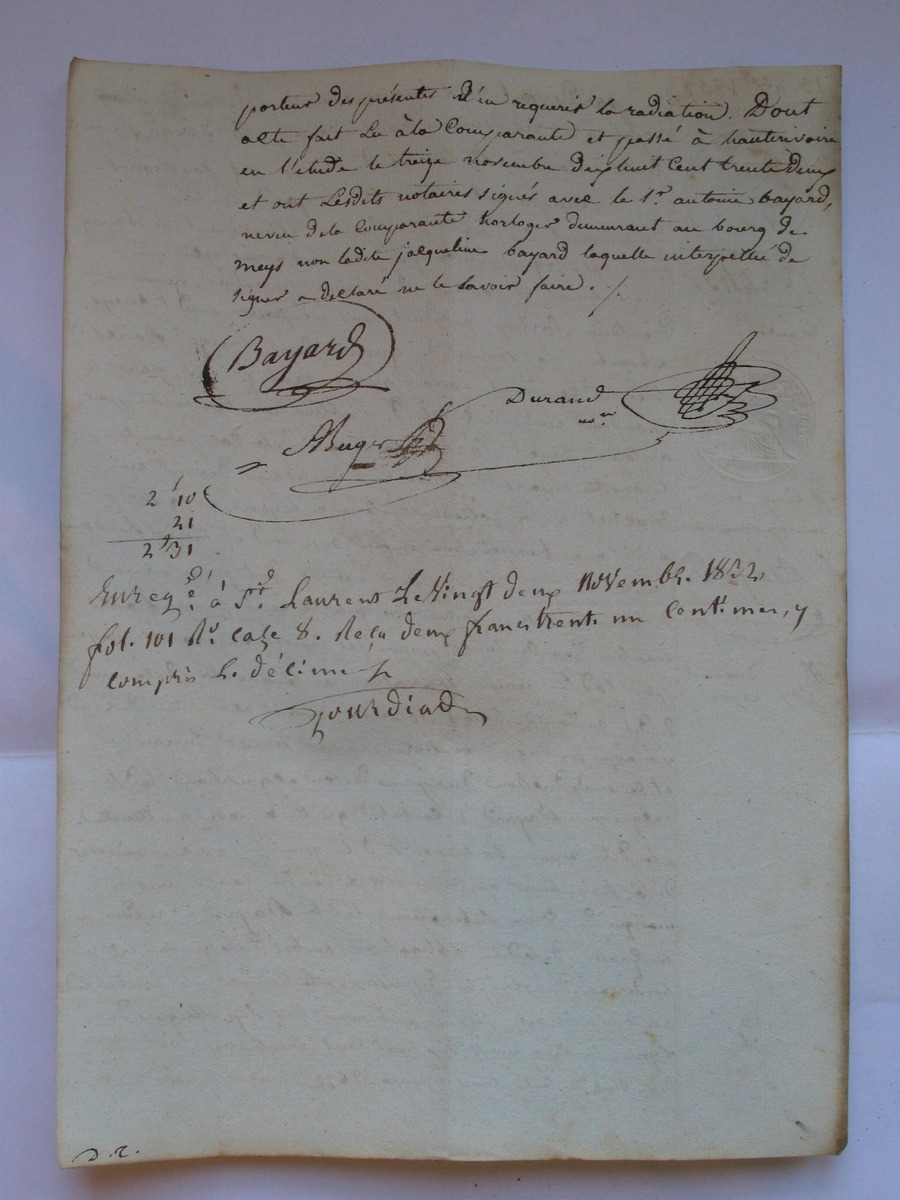 porteur des présentes d'en requerir la radiation. Dont
acte fait Lu à la Comparante et passé à hauterivoire
en l'etude le treize novembre dix huit Cent trente deux
et ont Lesdits notaires signés avec le Sr. antoine Bayard,
neveu de la Comparante horloger demeurant au bourg de
meys non ladite jacqueline bayard laquelle interpellée de
signer a declaré ne le savoir faire. /.
Bayard
Durand
nore
2f 10
21
2f 31
Enregé. à St. Laurent Le Vingt deux Novembre 1832,
fol. 101 Ro. Case 8. Reçu deux francs trente un Centimes, y
compris Le décime
Gourdiad
D. R.